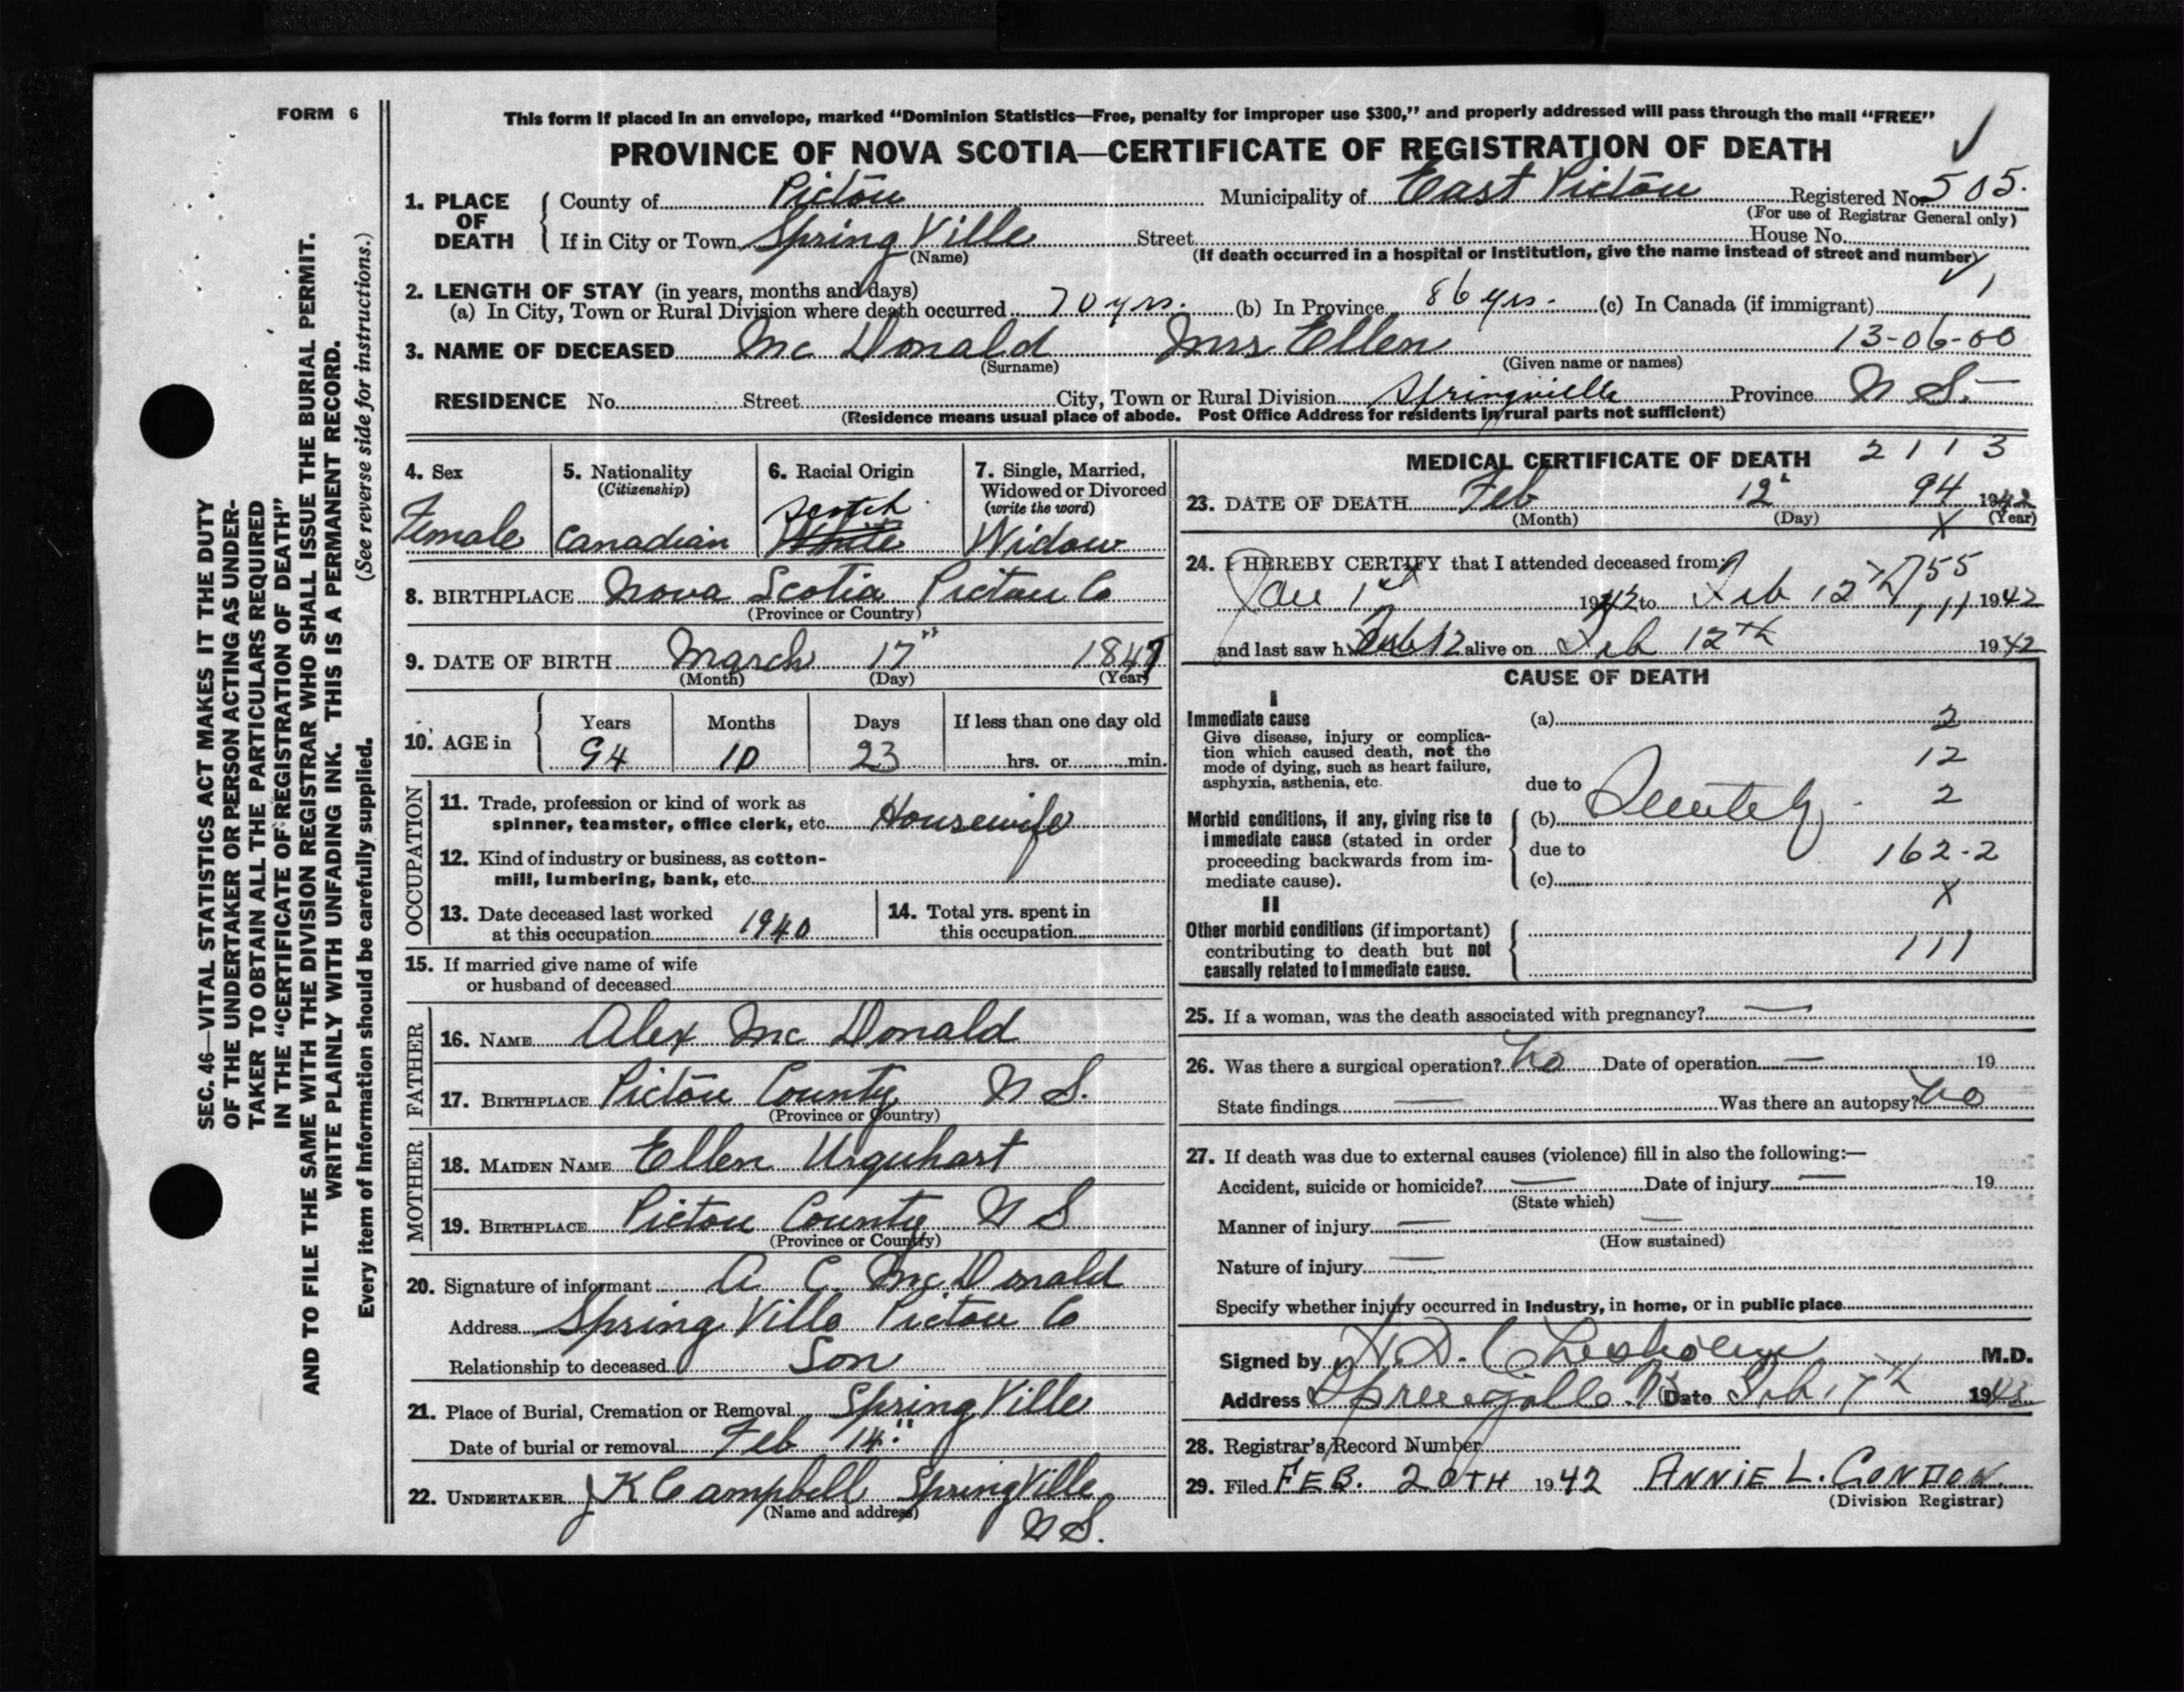 FORM 6
This form if placed in an envelope, marked "Dominion Statistics—Free, penalty for improper use $300," and properly addressed will pass through the mail "FREE"
PROVINCE OF NOVA SCOTIA—CERTIFICATE OF REGISTRATION OF DEATH
SEC. 46—VITAL STATISTICS ACT MAKES IT THE DUTY
OF THE UNDERTAKER OR PERSON ACTING AS UNDER-
TAKER TO OBTAIN ALL THE PARTICULARS REQUIRED
IN THE "CERTIFICATE OF REGISTRATION OF DEATH"
AND TO FILE THE SAME WITH THE DIVISION REGISTRAR WHO SHALL ISSUE THE BURIAL PERMIT.
WRITE PLAINLY WITH UNFADING INK. THIS IS A PERMANENT RECORD.
Every item of information should be carefully supplied. (See reverse side for instructions.)
1. PLACE OF DEATH
County of Pictou Municipality of East Pictou Registered No. 505.
(For use of Registrar General only)
If in City or Town Spring Ville Street House No.
(Name) (If death occurred in a hospital or institution, give the name instead of street and number)
2. LENGTH OF STAY (in years, months and days)
(a) In City, Town or Rural Division where death occurred 70 yrs. (b) In Province 86 yrs. (c) In Canada (if immigrant)
3. NAME OF DECEASED Mc Donald Mrs Ellen 13-06-00
(Surname) (Given name or names)
RESIDENCE No. Street City, Town or Rural Division Springville Province N S.
(Residence means usual place of abode. Post Office Address for residents in rural parts not sufficient)
4. Sex
Female
5. Nationality
(Citizenship)
Canadian
6. Racial Origin
Scotch
White
7. Single, Married,
Widowed or Divorced
(write the word)
Widow
8. BIRTHPLACE Nova Scotia Pictou Co
(Province or Country)
9. DATE OF BIRTH March 17" 1847
(Month) (Day) (Year)
10. AGE in
Years Months Days If less than one day old
94 10 23 hrs. or min.
OCCUPATION
11. Trade, profession or kind of work as
spinner, teamster, office clerk, etc. Housewife
12. Kind of industry or business, as cotton-
mill, lumbering, bank, etc.
13. Date deceased last worked
at this occupation 1940
14. Total yrs. spent in
this occupation
15. If married give name of wife
or husband of deceased
FATHER
16. NAME Alex Mc Donald
17. BIRTHPLACE Pictou County N S.
(Province or Country)
MOTHER
18. MAIDEN NAME Ellen Urquhart
19. BIRTHPLACE Pictou County N S
(Province or Country)
20. Signature of informant A C McDonald
Address Spring Ville Pictou Co
Relationship to deceased Son
21. Place of Burial, Cremation or Removal Spring Ville
Date of burial or removal Feb 14"
22. UNDERTAKER J K Campbell SpringVille
(Name and address)
N S.
MEDICAL CERTIFICATE OF DEATH 2113
23. DATE OF DEATH Feb 12" 94 1942
(Month) (Day) (Year)
X
24. I HEREBY CERTIFY that I attended deceased from
Jan 1st 1942 to Feb 12th 1942
755
111
and last saw h Feb 12 alive on Feb 12th 1942
CAUSE OF DEATH
I
Immediate cause
Give disease, injury or complica-
tion which caused death, not the
mode of dying, such as heart failure,
asphyxia, asthenia, etc.
(a) 2
12
due to
Morbid conditions, if any, giving rise to
immediate cause (stated in order
proceeding backwards from im-
mediate cause).
2
(b)
due to 162-2
(c)
X
II
Other morbid conditions (if important)
contributing to death but not
causally related to immediate cause.
111
25. If a woman, was the death associated with pregnancy? —
26. Was there a surgical operation? No Date of operation — 19
State findings — Was there an autopsy? No
27. If death was due to external causes (violence) fill in also the following:—
Accident, suicide or homicide? — Date of injury — 19
(State which)
Manner of injury — —
(How sustained)
Nature of injury —
Specify whether injury occurred in industry, in home, or in public place
Signed by D. Chisholm M.D.
Address Date Feb 17th 1942
28. Registrar's Record Number
29. Filed FEB. 20TH 1942 ANNIE L. CONDON.
(Division Registrar)